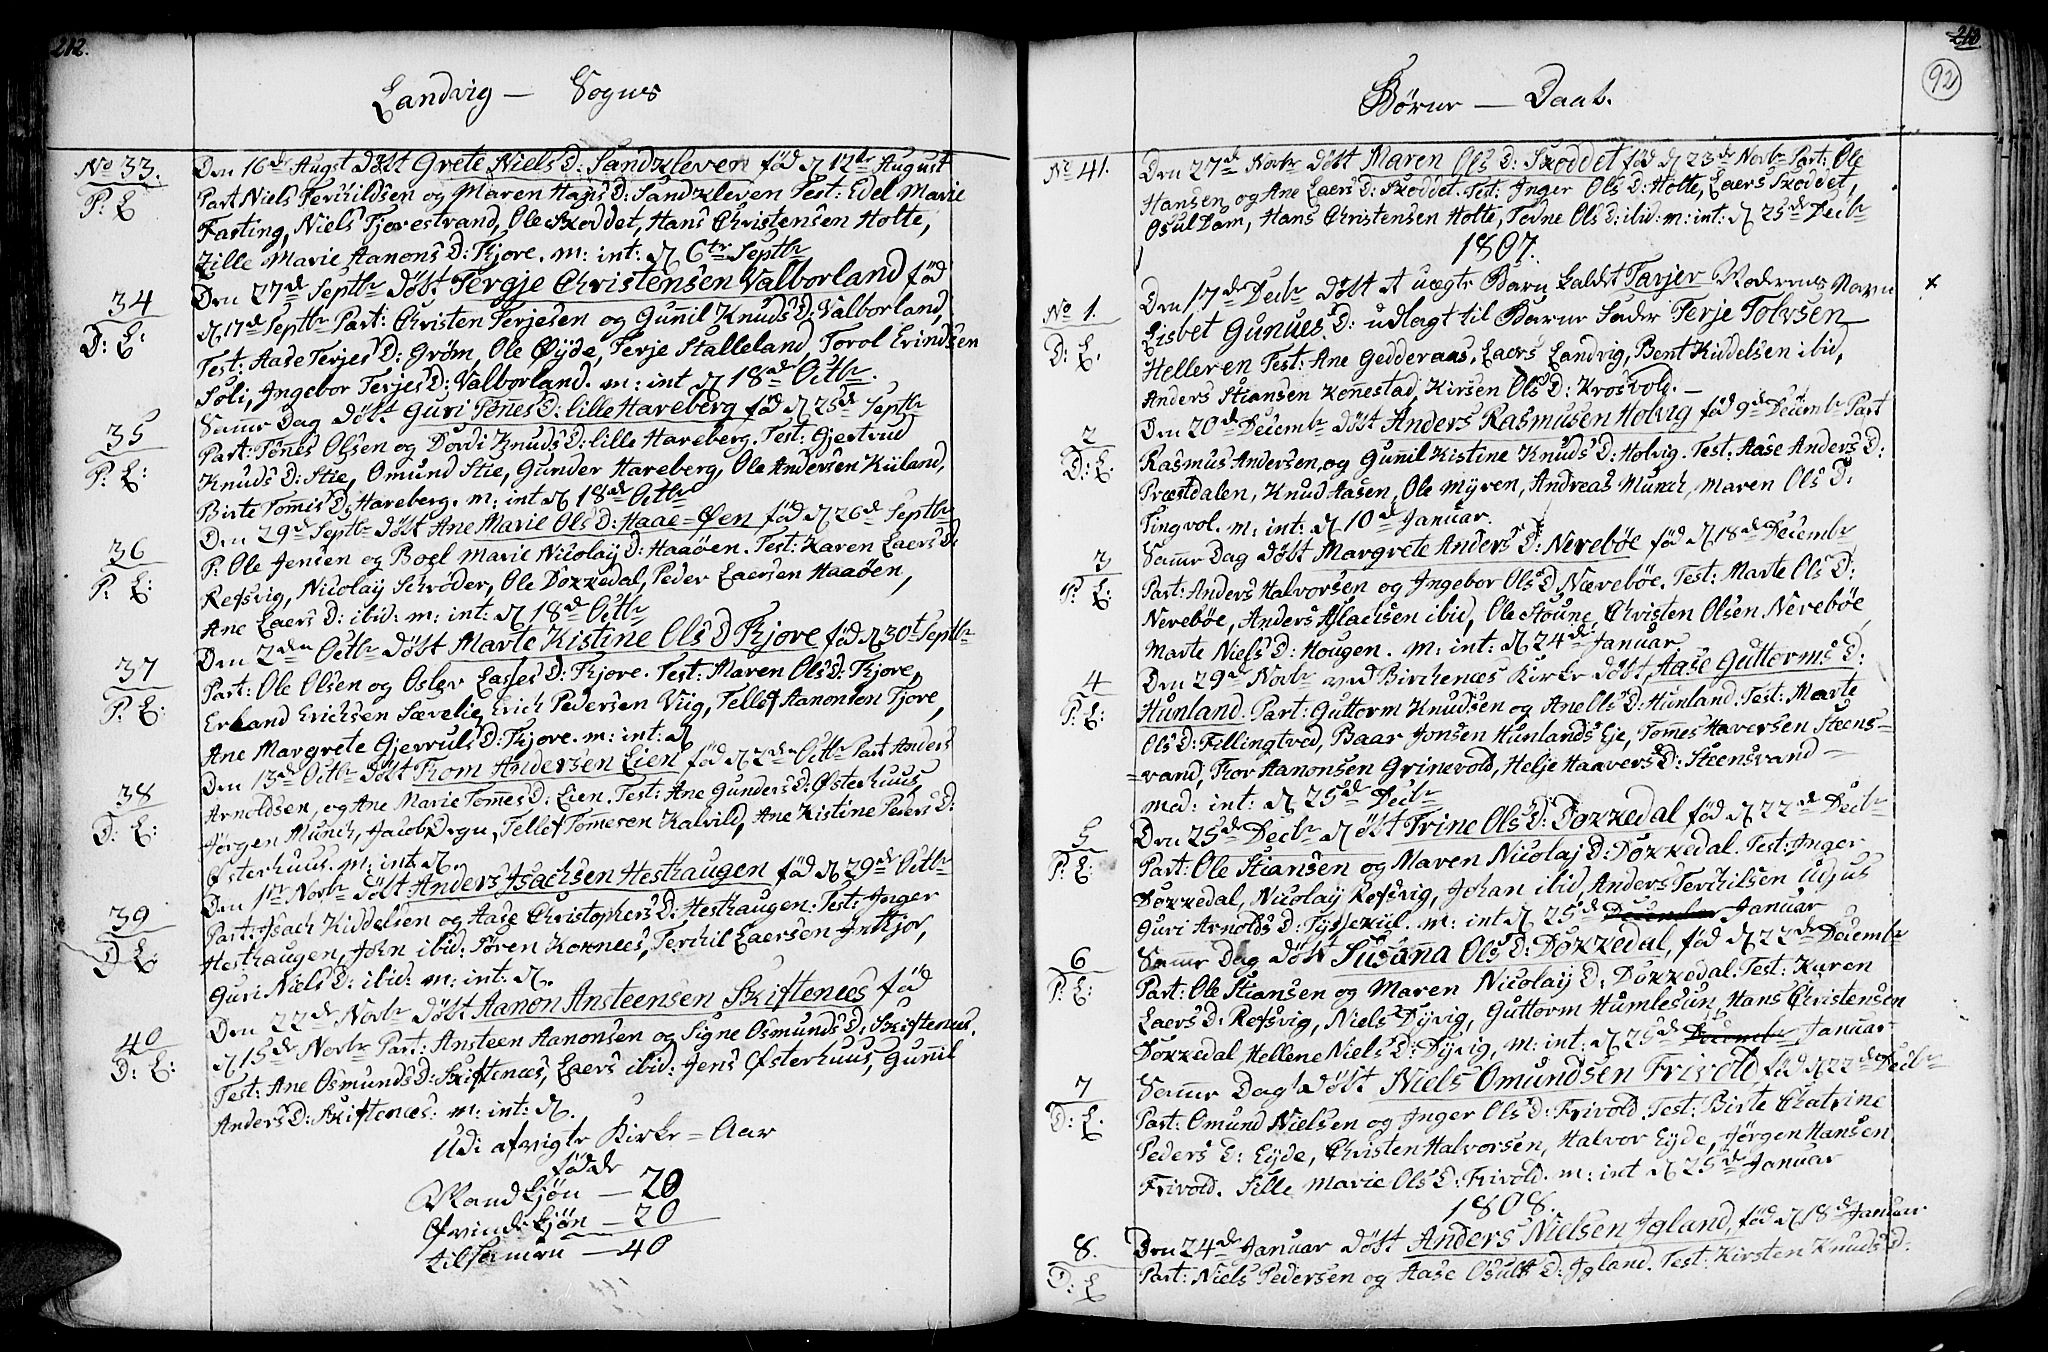 212.
Landvig — Sogns
No 33. Den 16de Augst döbt Grete Niels D: Sandkleven föd d 12te August
P: E Part Niels Terchildsen og Maren Hans D: Sandkleven Test: Edel Marie
Farting, Niels Fjorestrand, Ole Skoddet, Hans Christensen Holte,
Zille Marie Aanons D: Fjore. m: int: d 6te Septbr
34 Den 27de Septbr döbt Tergje Christensen Valborland föd
D: E: d 17de Septbr Part: Christen Terjesen og Gunil Knuds D: Valborland,
Test: Aase Terjes D: Gröm, Ole Øyde, Terje Stalleland, Torol Erindsen
Soli, Ingebor Terjes D: Valborland. m: int d 18de Octbr.
35 Same Dag döbt Guri Tönes D: lille Hareberg föd d 25de Septbr
P: E: Part: Tönes Olsen og Dordi Knuds D: lille Hareberg. Test: Gjertrud
Knuds D: Stie, Omund Stie, Gunder Hareberg, Ole Andersen Kiiland,
Birte Tomis D: Hareberg. m: int d 18de Octbr
36 Den 29de Septbr döbt Ane Marie Ols D: Haae=Øen föd d 26de Septbr
P: E: P: Ole Jensen og Boel Marie Nicolay D: Haaöen. Test: Karen Laers D:
Refsvig, Nicolay Schröder, Ole Dokkedal, Peder Laersen Haaöen,
Ane Laers D: ibid: m: int: d 18de Octbr
37 Den 2den Octbr döbt Marte Kistine Ols D Fjore föd d 30t Septbr
P: E: Part: Ole Olsen og Oslev Lasses D: Fjore. Test: Maren Ols D: Fjore,
Erland Erichsen Sævelie, Erich Pedersen Viig, Tellef Aanonsen Fjore,
Ane Margrete Gjerruls D: Fjore. m: int: d
38 Den 13de Octbr döbt Trom Andersen Lien föd d 2den Octbr Part Anders
D: E: Arnoldsen, og Ane Marie Tomes D: Lien. Test: Ane Gunders D: Østerhuus,
Jörgen Munch, Jacob Degn, Tellef Tomesen Kalvild, Ane Kistine Peders D:
Østerhuus. m: int d.
39 Den 1ste Novbr döbt Anders Isachsen Heshaugen föd d 29de Octbr
D: E: Part: Isach Kiddelsen og Aase Christophers D: Heshaugen. Test: Inger
Heshaugen, John ibid: Sören Kornees, Terchil Laersen
Guri Niels D: ibid: m: int: d.
40 Den 22de Novbr döbt Aanon Ansteensen Skiftenes föd
D: E: d 15de Novbr Part: Ansteen Aanonsen og Signe Osmunds D: Skiftenes.
Test: Ane Osmunds D: Skiftenes, Laers ibid: Jens Østerhuus, Gunil
Anders D: Skiftenes: m: int: d.
Udi afvigte Kirke=Aar
födde
Mandkjön — 20
Qvindekjön — 20
tilsamen — 40
213.
92
Börne — Daab.
No 41. Den 27de Novbr döbt Maren Ols D: Skoddet föd d 23de Novbr Part: Ole
Hansen og Ane Laers D: Skoddet. Test: Inger Ols D: Holte, Laers Skoddet,
Osul Dam, Hans Christensen Holte, Todne Ols D: ibid: m: int: d 25de Decbr
1807.
No 1. Den 17de Decbr döbt et uægte Barn kaldet Tarjer Moderens Navn +
D: E. Lisbet Gunues D: udlagt til Barne Fader Terje Tolvsen
Helleren Test: Ane Gedderaas, Laers Landvig, Bent Kiddelsen ibid,
Anders Stiansen Konestad, Kirsen Ols D: Krosvold. —
2 Den 20de Decembr döbt Anders Rasmusen Holvig föd 9de Decembr Part
D: E. Rasmus Andersen, og Gunil Kistine Knuds D: Holvig. Test: Aase Anders D:
Præstdalen, Knud Aasen, Ole Myren, Andreas Munch, Maren Ols D:
Tingvol. m: int: d 10de Januar.
3 Same Dag döbt Margrete Anders D: Nereböe föd d 18de Decembr
P: E: Part: Anders Halvorsen og Ingebor Ols D: Næreböe. Test: Marte Ols D:
Nereböe, Anders Aslacksen ibid, Ole Stoune, Christen Olsen Nereböe
Marte Niels D: Hougen. m: int: d 24de Januar
4 Den 29de Novbr ved Birchenes Kirke döbt Aase Guttorms D:
P: E: Hunland. Part: Guttorm Knudsen og Ane Ols D: Hunland. Test: Marte
Ols D: Fillingtved, Baar Jonsen Hunlands Eje, Tomes Haversen Steens-
=vand, Tror Aanonsen Grinevold, Helje Haavers D: Steensvand —
med: int: d 25de Decbr
5 Den 25de Decbr d öbt Trine Ols D: Dokkedal föd d 22de Decbr
P: E: Part: Ole Stiansen og Maren Nicolaj D: Dokkedal. Test: Inger
Dokkedal, Nicolay Refsvig, Johan ibid, Anders Terchilsen Ugus
Guri Arnolds D: m: int d 25de December Januar
6 Same Dag döbt Susana Ols D: Dokkedal, föd d 22de Decembr
P: E: Part: Ole Stiansen og Maren Nicolaÿ D: Dokkedal. Test: Karen
Laers D: Refsvig, Niels Dÿvig, Guttorm Humlesun, Hans Christensen
Dokkedal, Hellene Niels D: Dÿvig, m: int: d 25de Decembr Januar
7 Same Dag döbt Niels Omundsen Frivold, föd d 22de Decbr
D: E. Part: Omund Nielsen og Inger Ols D: Frivold. Test: Birte Chatrine
Peders D: Eÿde, Christen Halvorsen, Halvor Eÿde, Jörgen Hansen
Frivold. Sille Marie Ols D: Frivold. m: int d 25de Januar
1808.
8. Den 24de Januar döbt Anders Nielsen Igland, föd d 18de Januar
D: E Part: Niels Pedersen og Aase Osuls D: Igland. Test: Kirsten Knuds D: